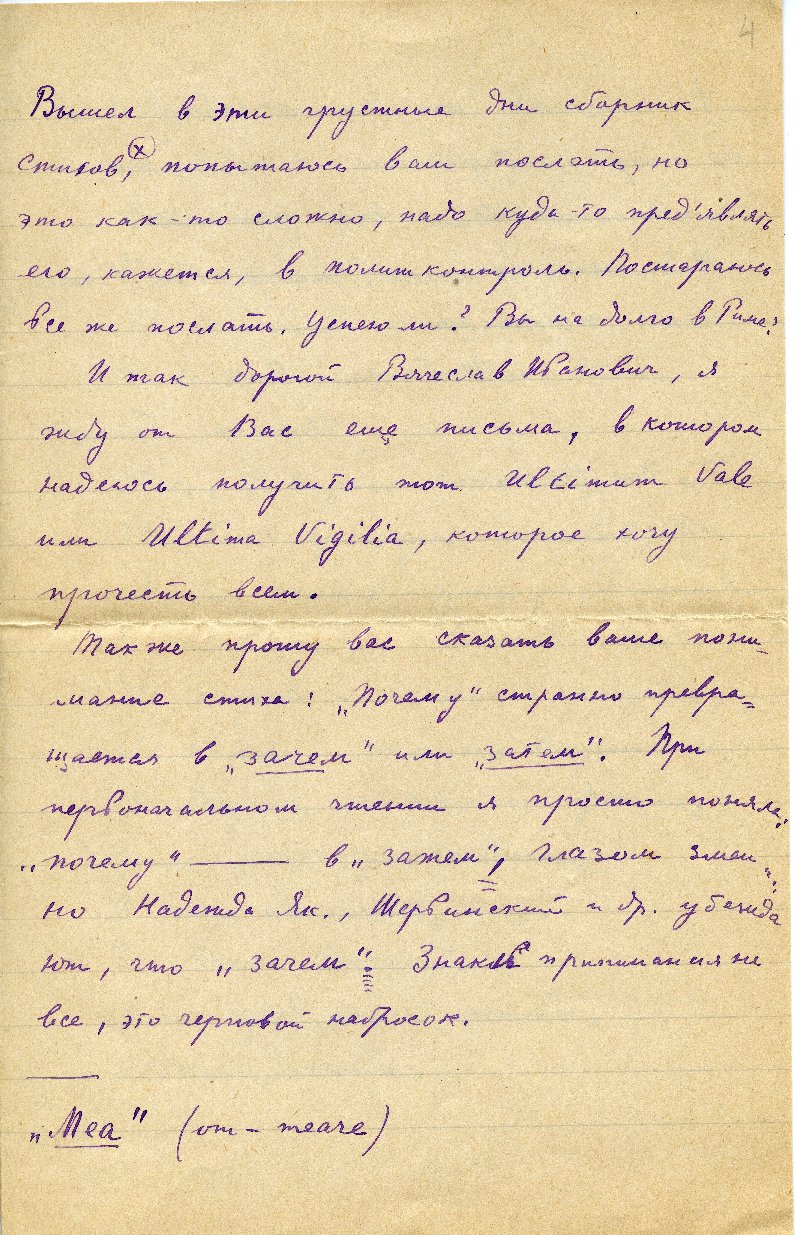 4
Вышел в эти грустные дни сборник
стихов, (x) попытаюсь вам послать, но
это как-то сложно, надо куда-то пред'являть
его, кажется, в политконтроль. Постараюсь
все же послать. Успею ли? Вы на долго в Риме?
Итак дорогой Вячеслав Иванович, я
жду от Вас еще письма, в котором
надеюсь получить тот Ultimum Vale
или Ultima Vigilia, которое хочу
прочесть всем.
Также прошу вас сказать ваше пони-
мание стиха: „Почему" странно превра-
щается в „зачем" или „затем". При
первоначальном чтении я просто поняла:
„почему" —— в „затем", глазом змеи":
но Надежда Як., Шервинский и др. убежда
ют, что „зачем". Знаки препинания не
все, это черновой набросок.
„Mea" (от - meare)